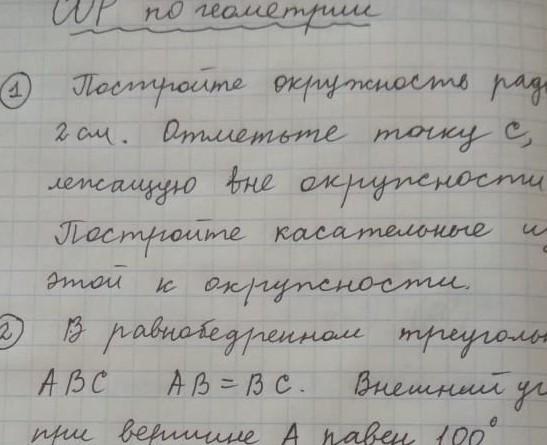 СР по геометрии
① Постройте окружность рад
2 см. Отметьте точку С,
лежащую вне окружности
Постройте касательные и
этой к окружности.
2) В равнобедренном треуголь
АВС АВ = ВС. Внешний уг
при вершине А равен 100°